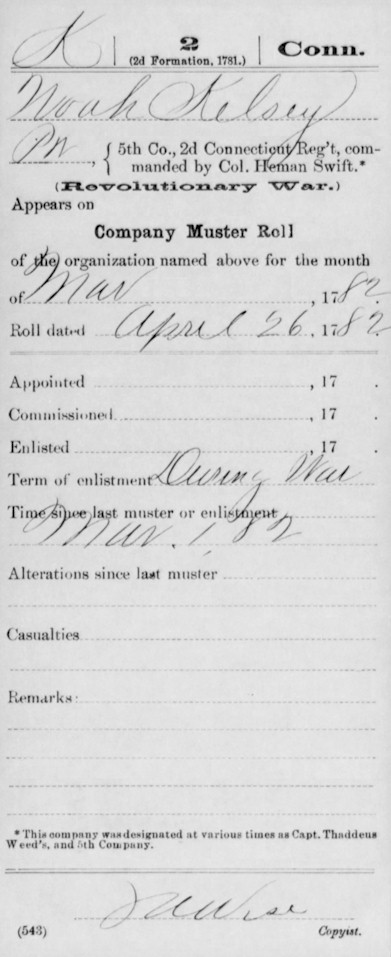 K | 2 | Conn.
(2d Formation, 1781.)
Noah Kelsey
Pvt, { 5th Co., 2d Connecticut Reg't, com-
manded by Col. Heman Swift.*
(Revolutionary War.)
Appears on
Company Muster Roll
of the organization named above for the month
of Mar, 1782.
Roll dated April 26, 1782.
Appointed , 17 .
Commissioned , 17 .
Enlisted , 17 .
Term of enlistment During War
Time since last muster or enlistment
Mar. 1, 82
Alterations since last muster
Casualties
Remarks:
* This company was designated at various times as Capt. Thaddeus
Weed's, and 5th Company.
(543) Copyist.